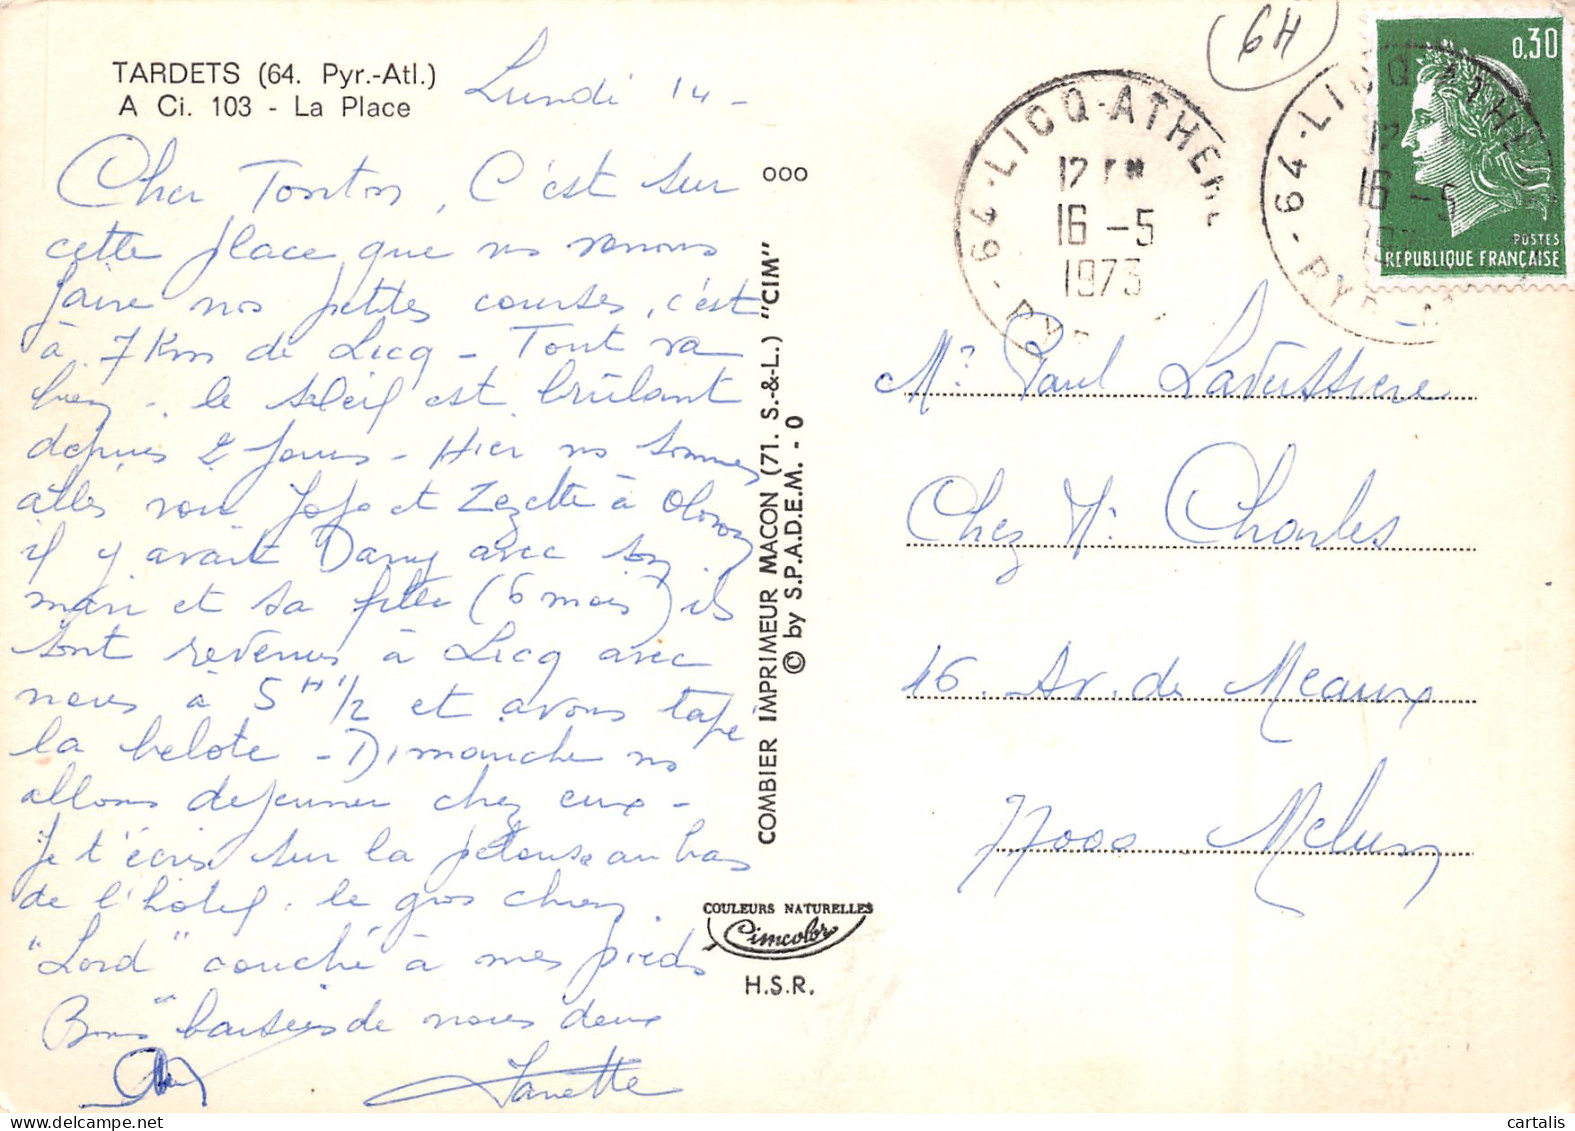 TARDETS (64. Pyr.-Atl.)
A Ci. 103 - La Place
Lundi 14 -
Cher Tonton, C'est sur
cette place que ns venons
faire nos petites courses, c'est
à 7 Km de Licq - Tout va
bien - le soleil est brûlant
depuis 2 jours - Hier ns sommes
allés voir Jojo et Zezette à Oloron
il y avait Dany avec son
mari et sa fille (6 mois) ils
sont revenus à Licq avec
nous à 5 H 1/2 et avons tapé
la belote - Dimanche ns
allons déjeuner chez eux -
Je t'écris sur la pelouse au bas
de l'hôtel. le gros chien
"Lord" couché à mes pieds
Bons baisers de nous deux
Janette
OOO
COMBIER IMPRIMEUR MACON (71. S.-&-L.) "CIM"
© by S.P.A.D.E.M. - O
COULEURS NATURELLES
Cimcolor
H.S.R.
6H
64 - LICQ-ATHEREY
12 H
16 -5
1973
PYR
64 - LICQ-ATHE
12
16 -5
197
PYR-A
0,30
POSTES
REPUBLIQUE FRANÇAISE
Mr Paul Lavussière
Chez Mr Charles
46. Av. de Meaux
77000 Melun
cartalis